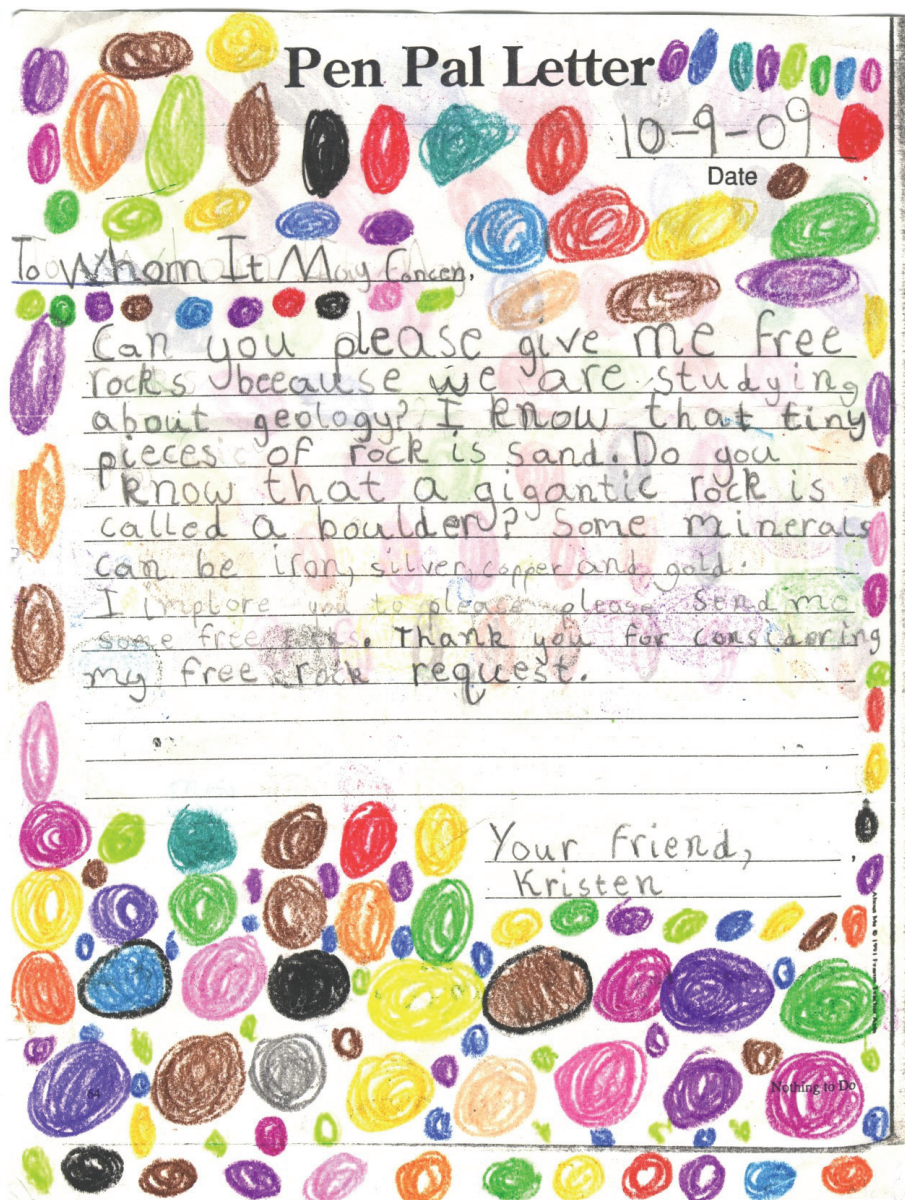 Pen Pal Letter
10-9-09
Date
To Whom It May Concen,
Can you please give me free
rocks because we are studying
about geology? I know that tiny
pieces of rock is sand. Do you
know that a gigantic rock is
called a boulder? Some minerals
can be iron, silver, copper and gold.
I implore you to please please send me
some free rocks. Thank you for considering
my free rock request.
Your friend,
Kristen
64
Nothing to Do